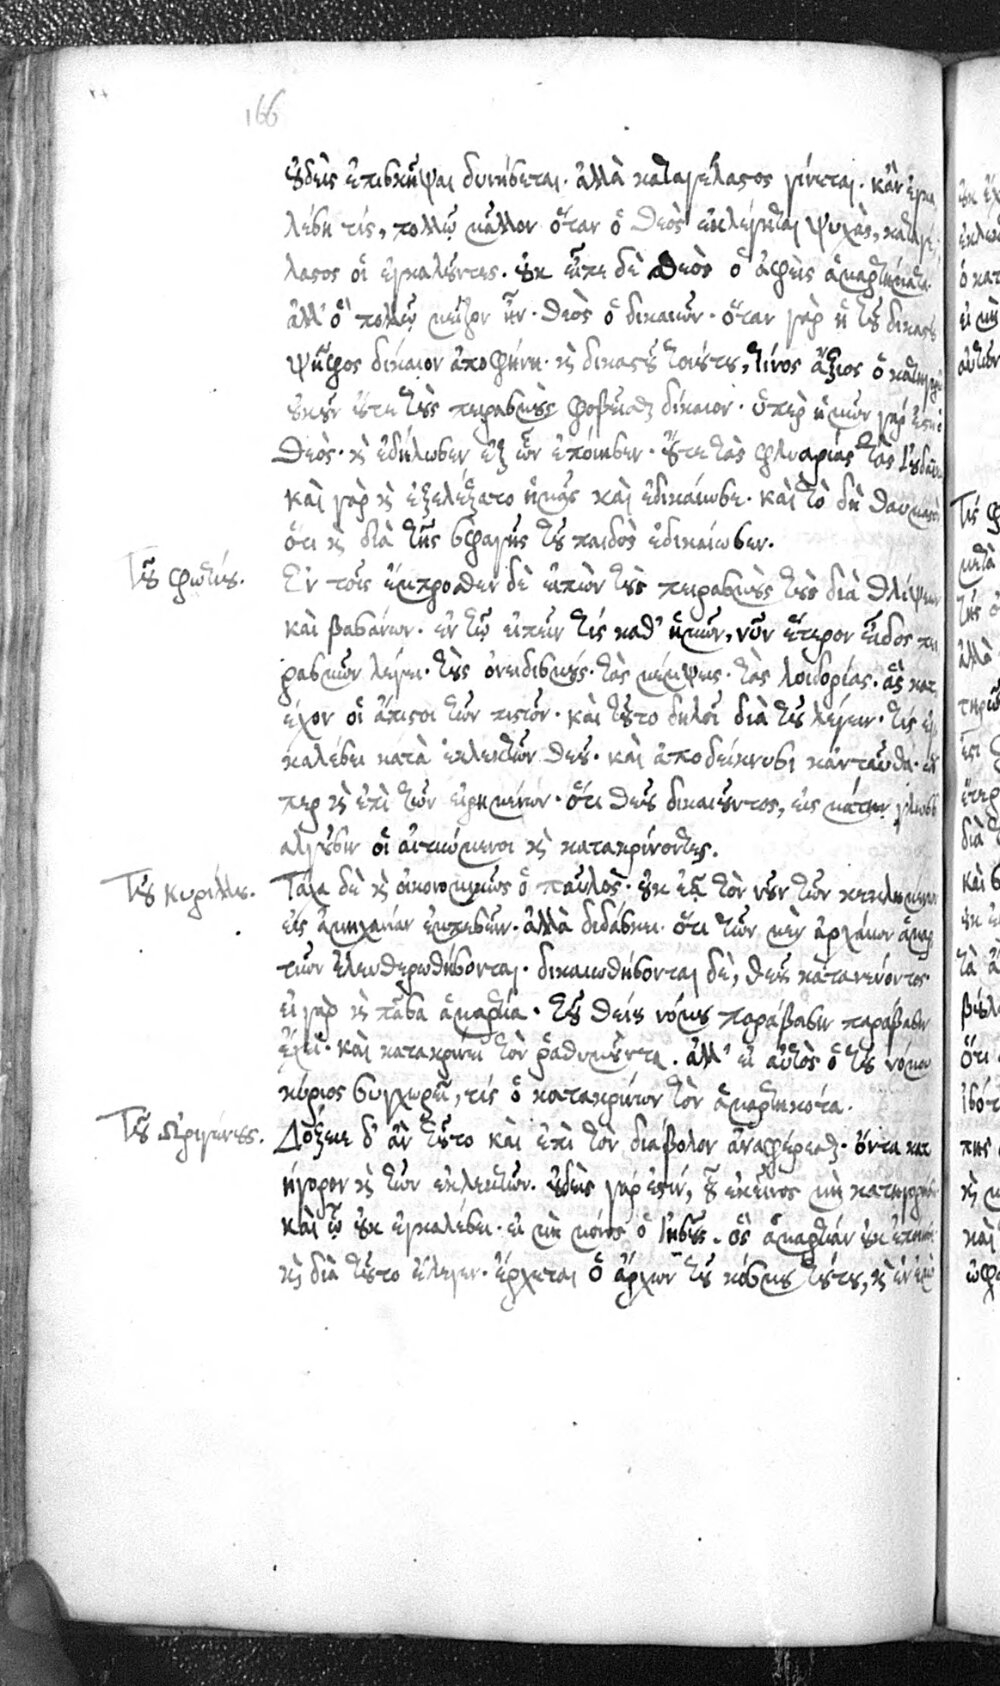 166
οὐδεὶς ἐπισκῆψαι δυνήσεται. ἀλλὰ καταγέλαστος γίνεται. κἂν ἐγκα
λέσῃ τίς, πολλῷ μᾶλλον ὅταν ὁ θεὸς ἐκλέγηται ψυχὰς, καταγέ
λαστος οἱ ἐγκαλοῦντες. οὐκ εἶπε δὲ θεὸς ὁ ἀφεὶς ἁμαρτήματα.
ἀλλ' ὃ πολλῷ μεῖζον ἦν. θεὸς ὁ δικαιῶν. ὅταν γὰρ ἡ τοῦ δικαστοῦ
ψῆφος δίκαιον ἀποφήνῃ. καὶ δικαστοῦ τοιούτου, τίνος ἄξιος ὁ κατηγορῶν
οὐκοῦν οὔτε τοὺς πειρασμοὺς φοβεῖσθαι δίκαιον. ὑπὲρ ἡμῶν γάρ ἐστι ὁ
θεὸς. καὶ ἐδήλωσεν ἐξ ὧν ἐποίησεν. οὔτε τὰς φλυαρίας τὰς Ἰουδαϊκὰς
καὶ γὰρ καὶ ἐξελέξατο ἡμᾶς καὶ ἐδικαίωσε. καὶ τὸ δὴ θαυμαστὸν
ὅτι καὶ διὰ τῆς σφαγῆς τοῦ παιδὸς ἐδικαίωσεν.
Τοῦ φωτίου. Ἐν τοῖς ἔμπροσθεν δὲ εἰπὼν τοὺς πειρασμοὺς τοὺς διὰ θλίψεων
καὶ βασάνων. ἐν τῷ εἰπεῖν τίς καθ' ἡμῶν, νῦν ἕτερον εἶδος πει
ρασμῶν λέγει. τοὺς ὀνειδισμούς. τὰς μέμψεις. τὰς λοιδορίας. ἃς κατ
εῖχον οἱ ἄπιστοι τῶν πιστῶν. καὶ τοῦτο δηλοῖ διὰ τοῦ λέγειν. τίς ἐγ
καλέσει κατὰ ἐκλεκτῶν θεοῦ. καὶ ἀποδείκνυσι κἀνταῦθα. ὥσ
περ καὶ ἐπὶ τῶν εἰρημένων. ὅτι θεοῦ δικαιοῦντος, εἰς μάτην γλωσσ
αλγοῦσιν οἱ αἰτιώμενοι καὶ κατακρίνοντες.
Τοῦ κυρίλλου. Τάχα δὲ καὶ οἰκονομικῶς ὁ παῦλος. οὐκ ἐᾷ τὸν νοῦν τῶν κεκλημένων
εἰς ἀμηχανίαν ἐμπεσεῖν. ἀλλὰ διδάσκει. ὅτι τῶν μὲν ἀρχαίων ἁμαρ
τιῶν ἐλευθερωθήσονται. δικαιωθήσονται δὲ, θεοῦ κατανεύοντος
εἰ γὰρ καὶ πᾶσα ἁμαρτία. τοῦ θείου νόμου παράβασιν παράβασιν
ἔχει. καὶ κατακρίνει τὸν ῥαθυμοῦντα. ἀλλ' εἰ αὐτὸς ὁ τοῦ νόμου
κύριος συγχωρεῖ, τίς ὁ κατακρίνων τὸν ἁμαρτηκότα.
Τοῦ Ὠριγένους. Δόξειε δ' ἂν τοῦτο καὶ ἐπὶ τὸν διάβολον ἀναφέρεσθαι. ὄντα κατ
ήγορον καὶ τῶν ἐκλεκτῶν. οὐδεὶς γάρ ἐστιν, οὗ ἐκεῖνος μὴ κατηγορήσει
καὶ ᾧ οὐκ ἐγκαλέσει. εἰ μὴ μόνος ὁ Ἰησοῦς. ὃς ἁμαρτίαν οὐκ ἐποίησε
καὶ διὰ τοῦτο ἔλεγεν. ἔρχεται ὁ ἄρχων τοῦ κόσμου τούτου, καὶ ἐν ἐμοὶ